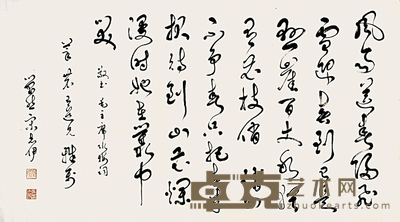 風雨送春歸飛
雪迎春到已是
懸崖百丈冰猶
有花枝俏俏也
不争春只把春来
报待到山花爛
漫时她在叢中
笑
敬书毛主席咏梅词